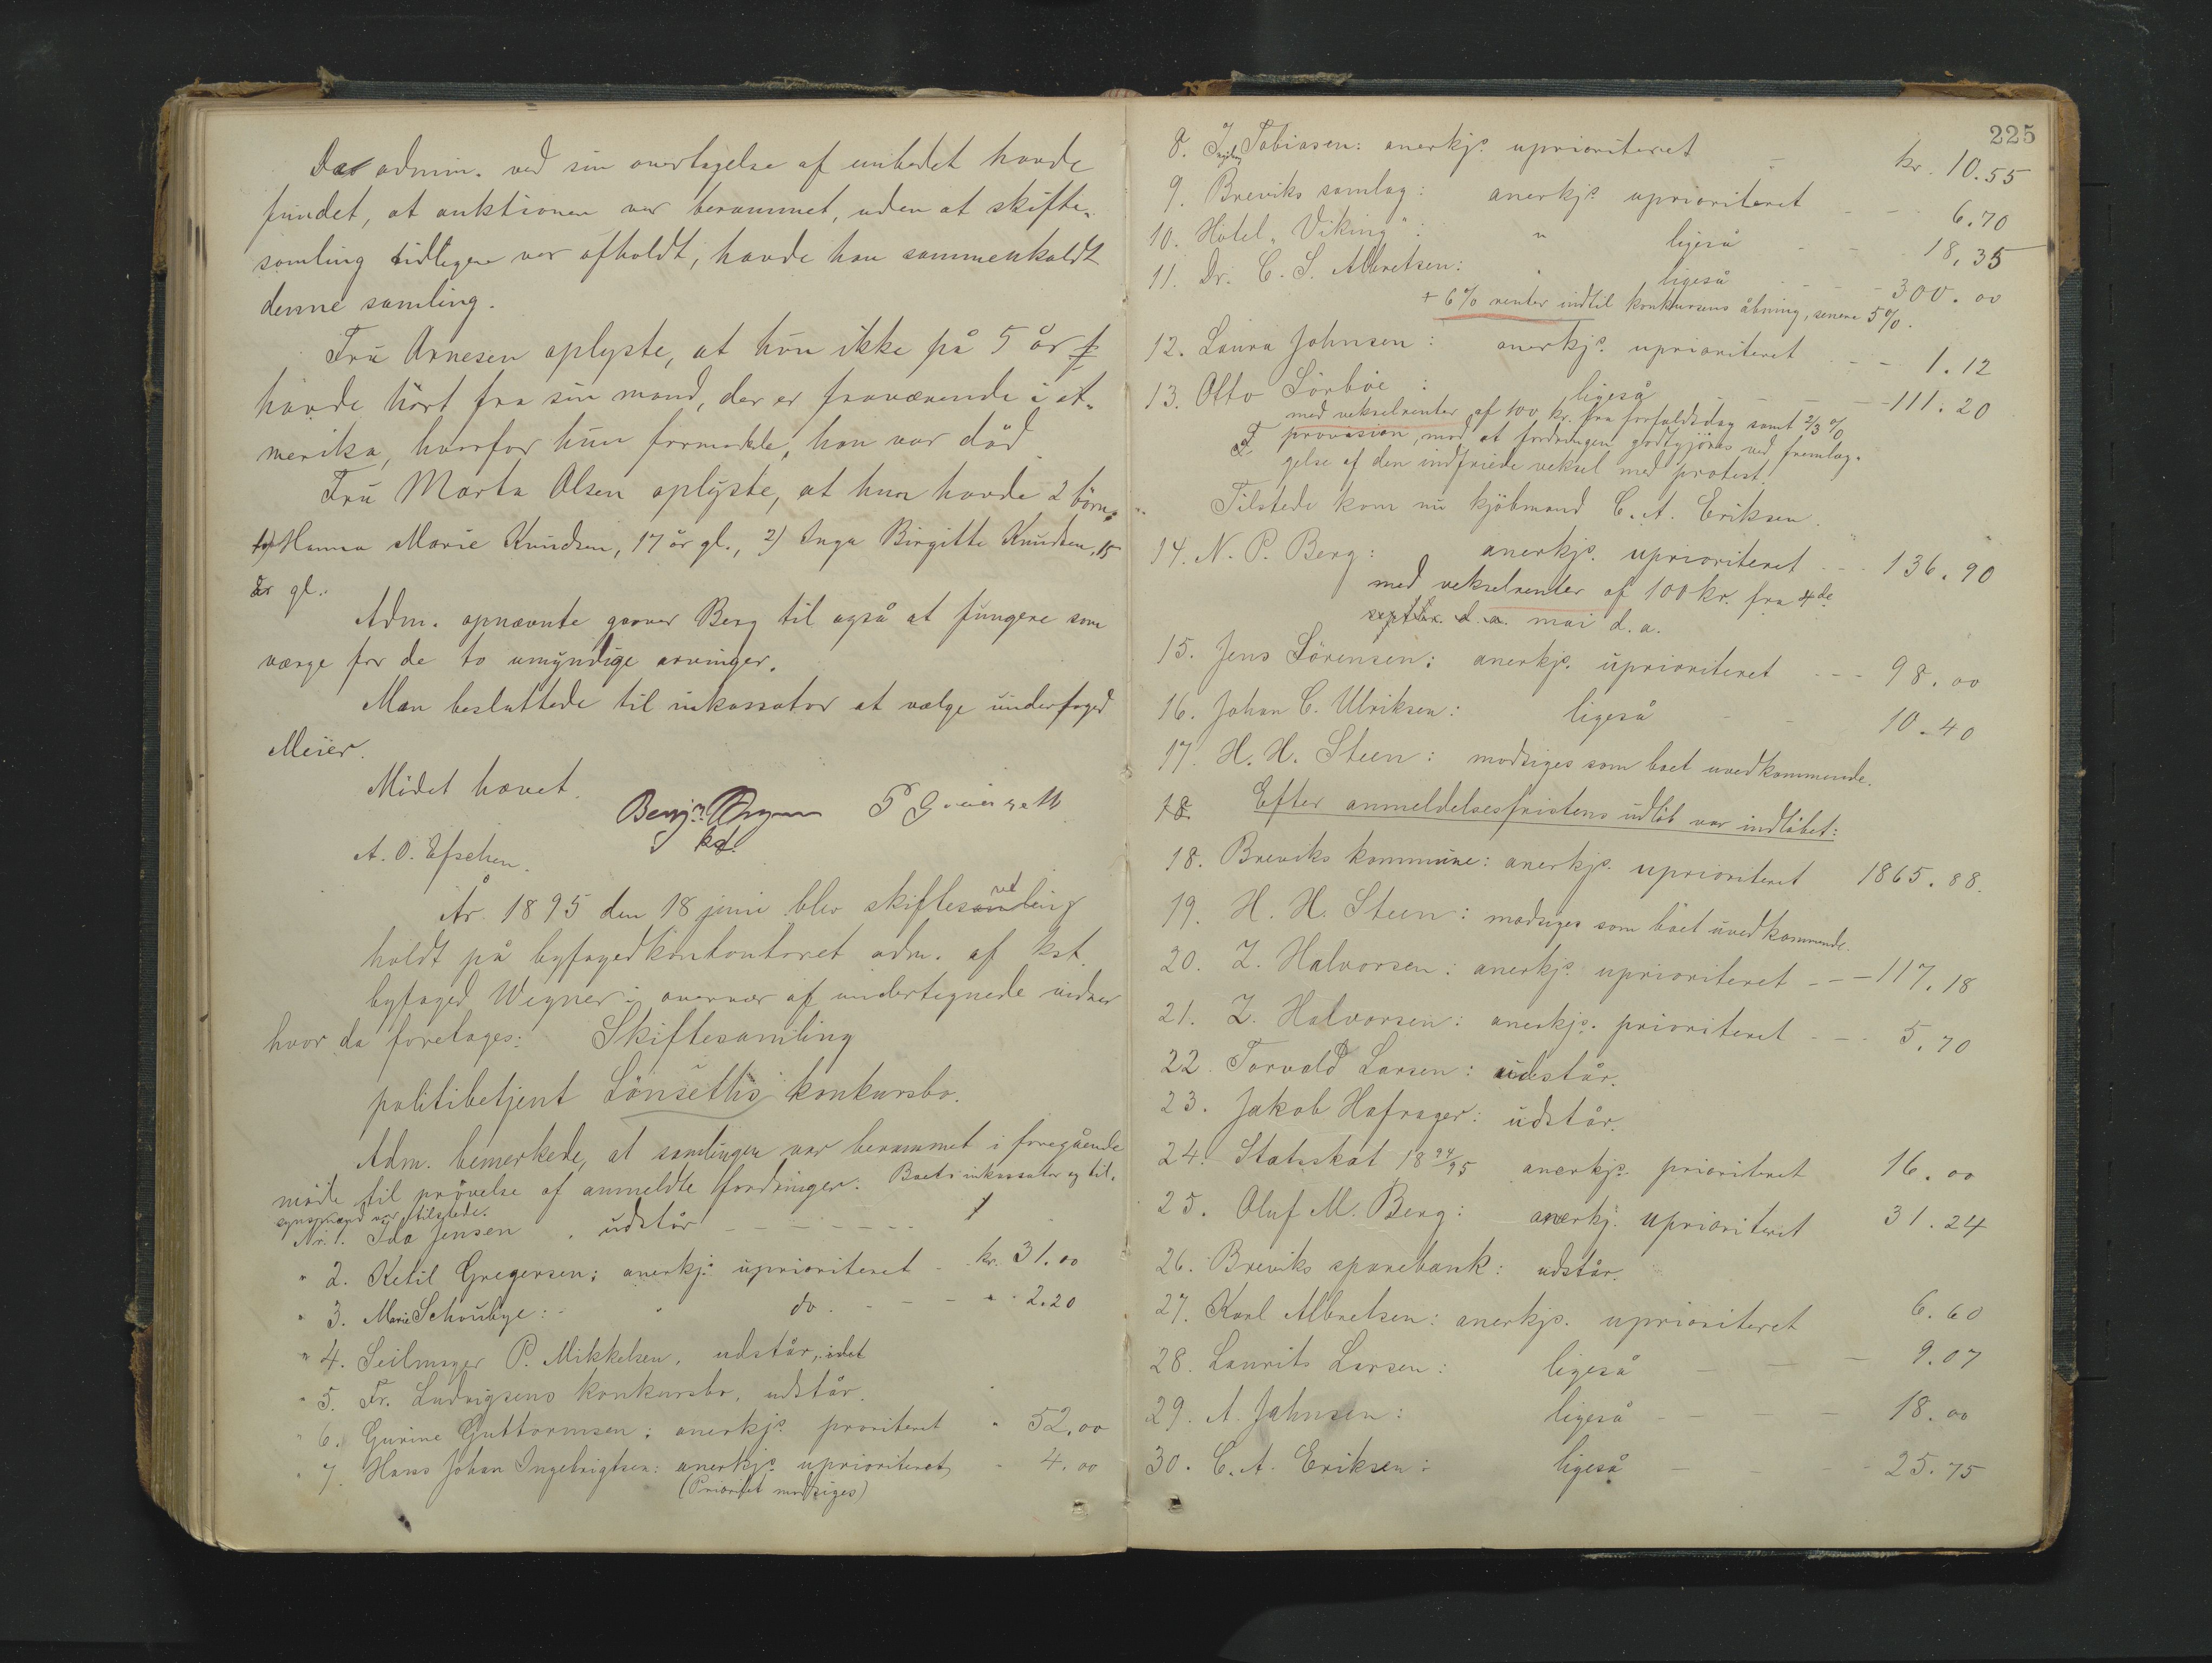 Da admin. ved sin overtagelse af embedet havde
fundet, at auktionen var berammet, uden at skifte-
samling tidligere var afholdt, havde han sammenkaldt
denne samling.
Fru Arnesen oplyste, at hun ikke på 5 år
havde hört fra sin mand, der er fraværende i A-
merika, hvorfor hun formodede, han var död.
Fru Marta Olsen oplyste, at hun havde 2 börn:
1) Hanna Marie Knudsen, 17 år gl., 2) Inga Birgitte Knudsen, 15
år gl.
Adm. opnævnte garver Berg til også at fungere som
værge for de to umyndige arvinger.
Man besluttede til inkassator at vælge underfoged
Meier.
Mödet hævet.
A. O. Efschen.
År 1895 den 18 juni blev skifteret
holdt på byfogedkontontoret adm. af kst.
byfoged Wegner i overvær af undertegnede vidner
hvor da foretages: Skiftesamling
politibetjent Lönseths konkursbo.
Adm. bemerkede, at samlingen var berammet i foregående
möde til prövelse af anmeldte fordringer. Boets inkassator og til-
synsmænd var tilstede.
Nr. 1. Ida Jensen . udstår
" 2. Ketil Gregersen: anerkjs. uprioriteret - kr. 31.00
" 3. Marie Schoubye: " do. - - - " 2.20
" 4. Seilmager P. Mikkelsen, udstår, idet
" 5. Fr. Ludvigsens konkursbo, udstår.
" 6. Gurine Guttormsen: anerkjs. prioriteret " 52.00
" 7. Hans Johan Ingebrigtsen: anerkjs. uprioriteret - 4.00
(Prioritet modsiges)
225
8. I. Tobiasen: anerkjs. uprioriteret - kr. 10.55
9. Breviks samlag: anerkjs. uprioriteret - - 6.70
10. Hotel "Viking": " ligeså - - 18.35
11. Dr. C. S. Albretsen: " ligeså - - - 300.00
+ 6% renter indtil konkursens åbning, senere 5%.
12. Laura Johnsen: anerkjs. uprioriteret - - 1.12
13. Otto Sörböe: ligeså - - - 111.20
med vekselrenter af 100 kr. fra forfaldsdag samt 2/3 %
provision, mod at fordringen godtgjöres ved fremlæg-
gelse af den indfriede veksel med protest.
Tilstede kom nu kjöbmand C. A. Eriksen.
14. N. P. Berg: anerkjs. uprioriteret - - 136.90
med vekselrenter af 100 kr. fra 4de
septbr. d. a. mai d. a.
15. Jens Sörensen: anerkjs. uprioriteret - - - 98.00
16. Johan C. Ulriksen: ligeså - - 10.40
17. H. H. Steen: modsiges som boet uvedkommende.
18. Efter anmeldelsesfristens udlöb var indlöbet:
18. Breviks kommune: anerkjs. uprioriteret 1865.88.
19. H. H. Steen: modsiges som boet uvedkommende.
20. Z. Halvorsen: anerkjs. uprioriteret - - - 117.18
21. Z. Halvorsen: anerkjs. prioriteret - - - 5.70
22. Torvald Larsen: udstår.
23. Jakob Hafrager: udstår.
24. Statsskat 18 94/95 anerkjs. prioriteret 16.00
25. Oluf M. Berg: anerkj. uprioriteret 31.24
26. Breviks sparebank: udstår.
27. Karl Albretsen: anerkjs. uprioriteret 6.60
28. Laurits Larsen: ligeså - - - 9.07
29. A. Johnsen: ligeså - - - 18.00
30. C. A. Eriksen: ligeså - - - 25.75